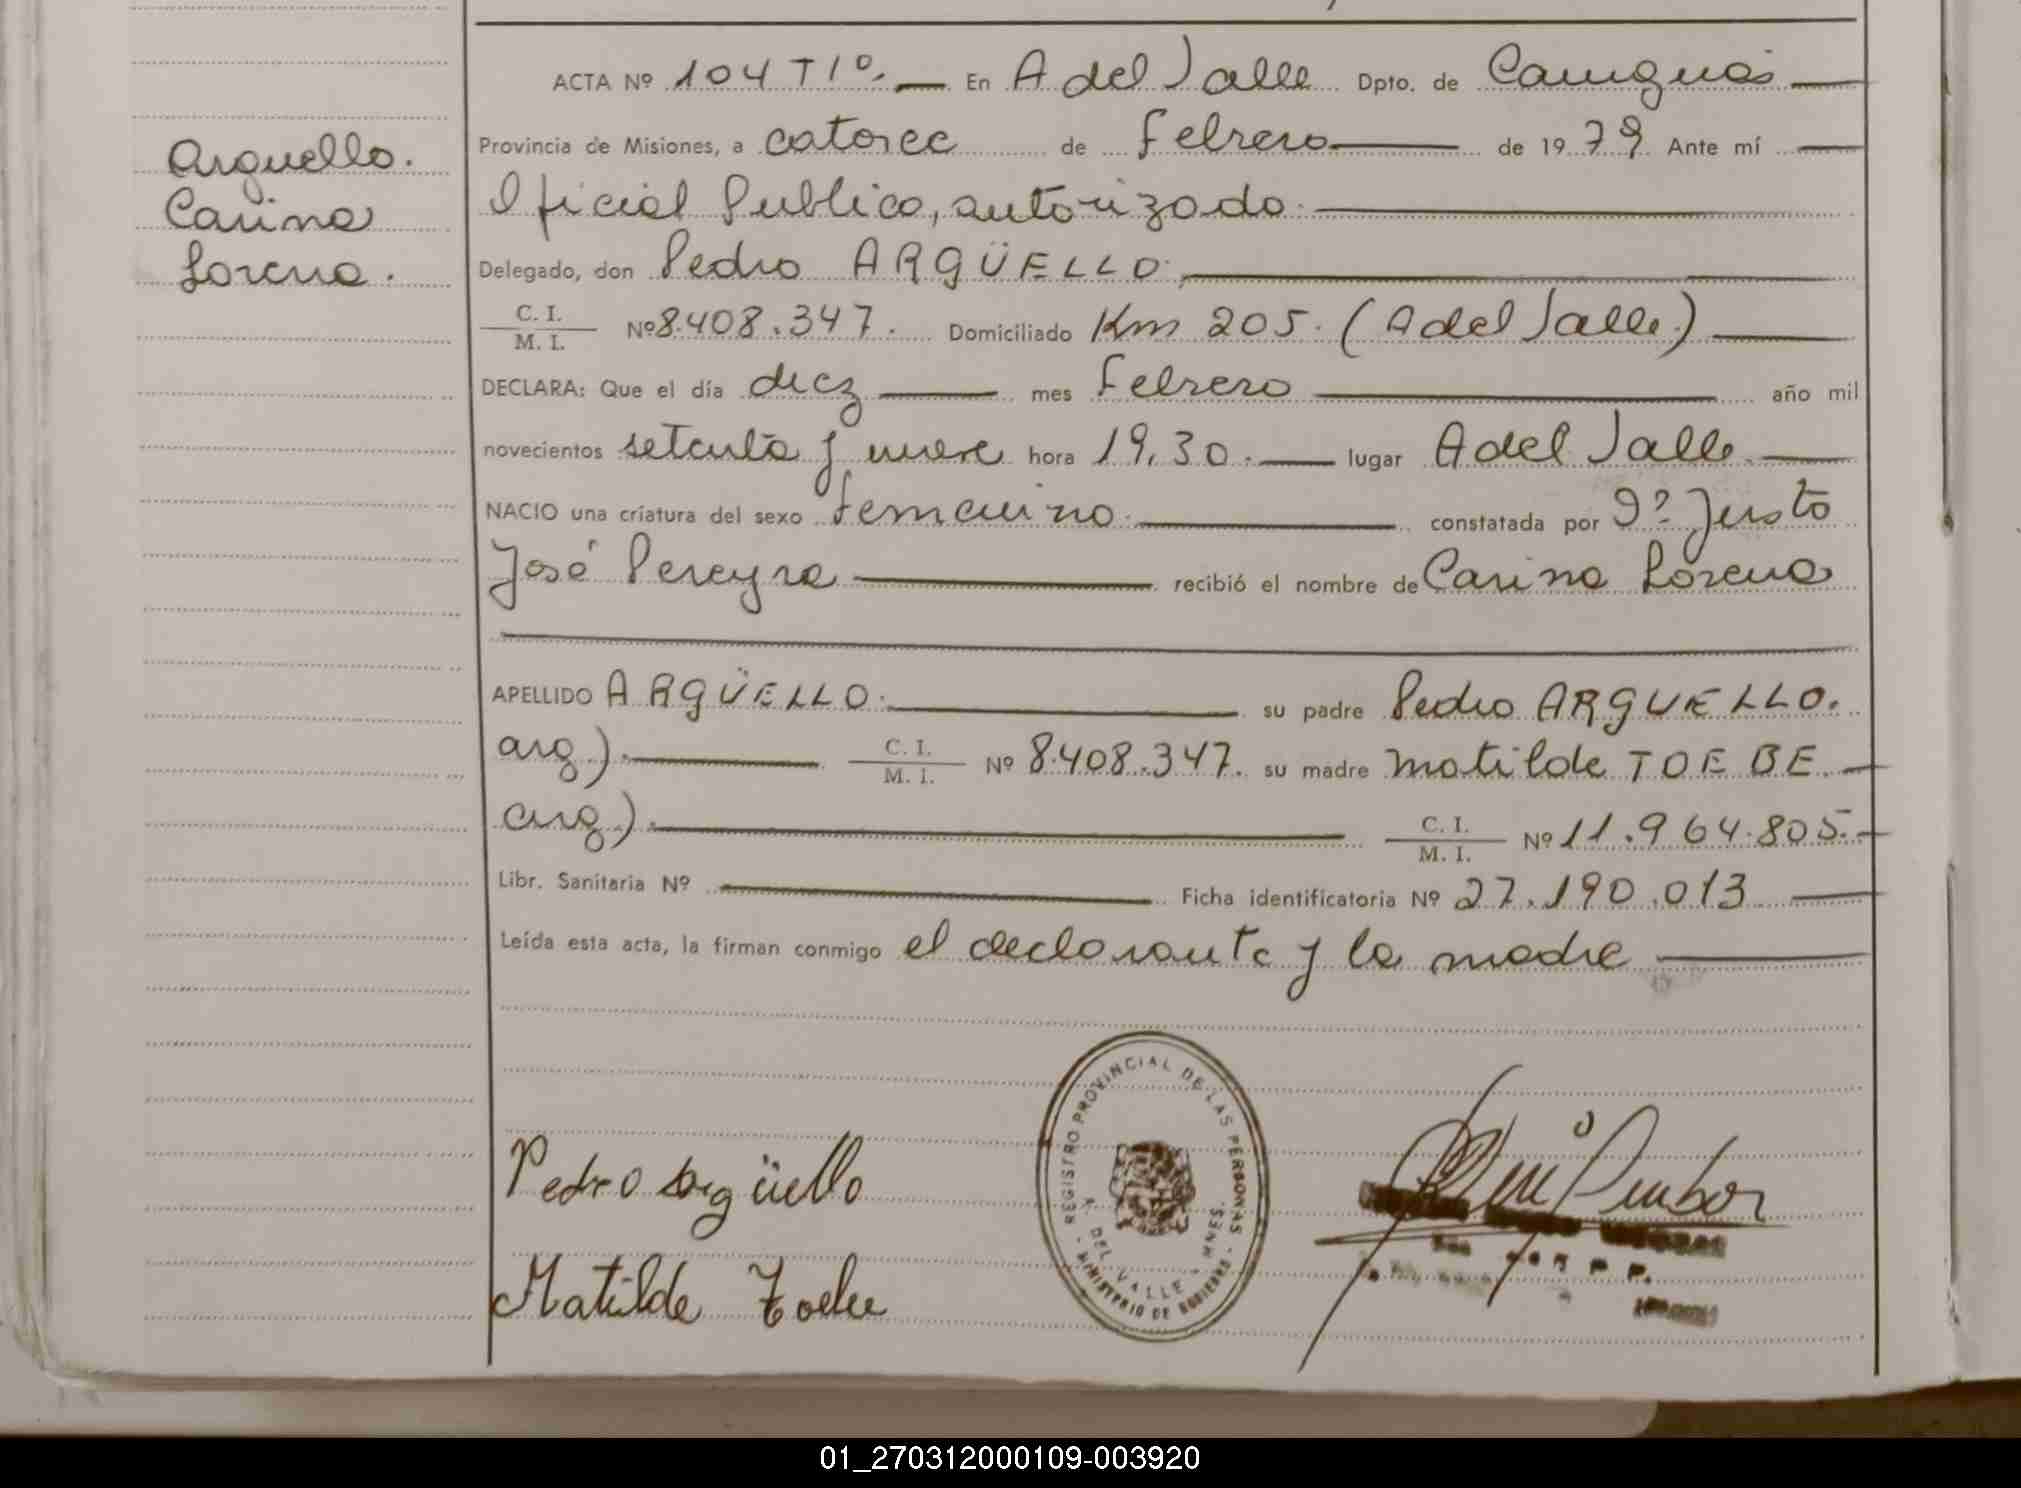 ACTA Nº 104 T1º. En A del Valle Dpto. de Cainguás
Provincia de Misiones, a catorce de Febrero de 1979 Ante mí
Arguello.
Carina
Lorena.
Oficial Publico, autorizado.
Delegado, don Pedro ARGÜELLO.
C. I.
M. I. Nº 8.408.347. Domiciliado Km 205. (A del Valle.)
DECLARA: Que el día diez mes Febrero año mil
novecientos setenta y nueve hora 19,30. lugar A del Valle.
NACIO una criatura del sexo femenino. constatada por Jº Justo
José Pereyra recibió el nombre de Carina Lorena
APELLIDO ARGÜELLO. su padre Pedro ARGUELLO.
arg). C. I.
M. I. Nº 8.408.347. su madre Matilde TOEBE
arg). C. I.
M. I. Nº 11.964.805.
Libr. Sanitaria Nº Ficha identificatoria Nº 27.190.013
Leída esta acta, la firman conmigo el declarante y la madre
Pedro Argüello
Matilde Toebe
REGISTRO PROVINCIAL DE LAS PERSONAS
A. DEL VALLE - MNES.
- MINISTERIO DE GOBIERNO -
01_270312000109-003920